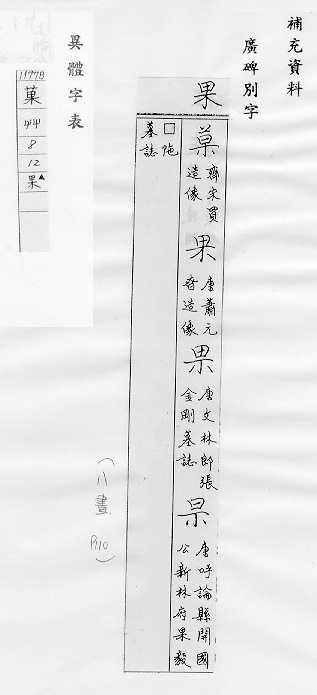 補充資料
廣碑別字
果
菓 齊宋買造像
果 唐蕭元眘造像
果 唐文林郎張金剛墓誌
杲 唐呼論縣開國公新林府果毅
□陁墓誌
(八畫 P.110)
異體字表
1177B
菓
艸
8
12
果▲